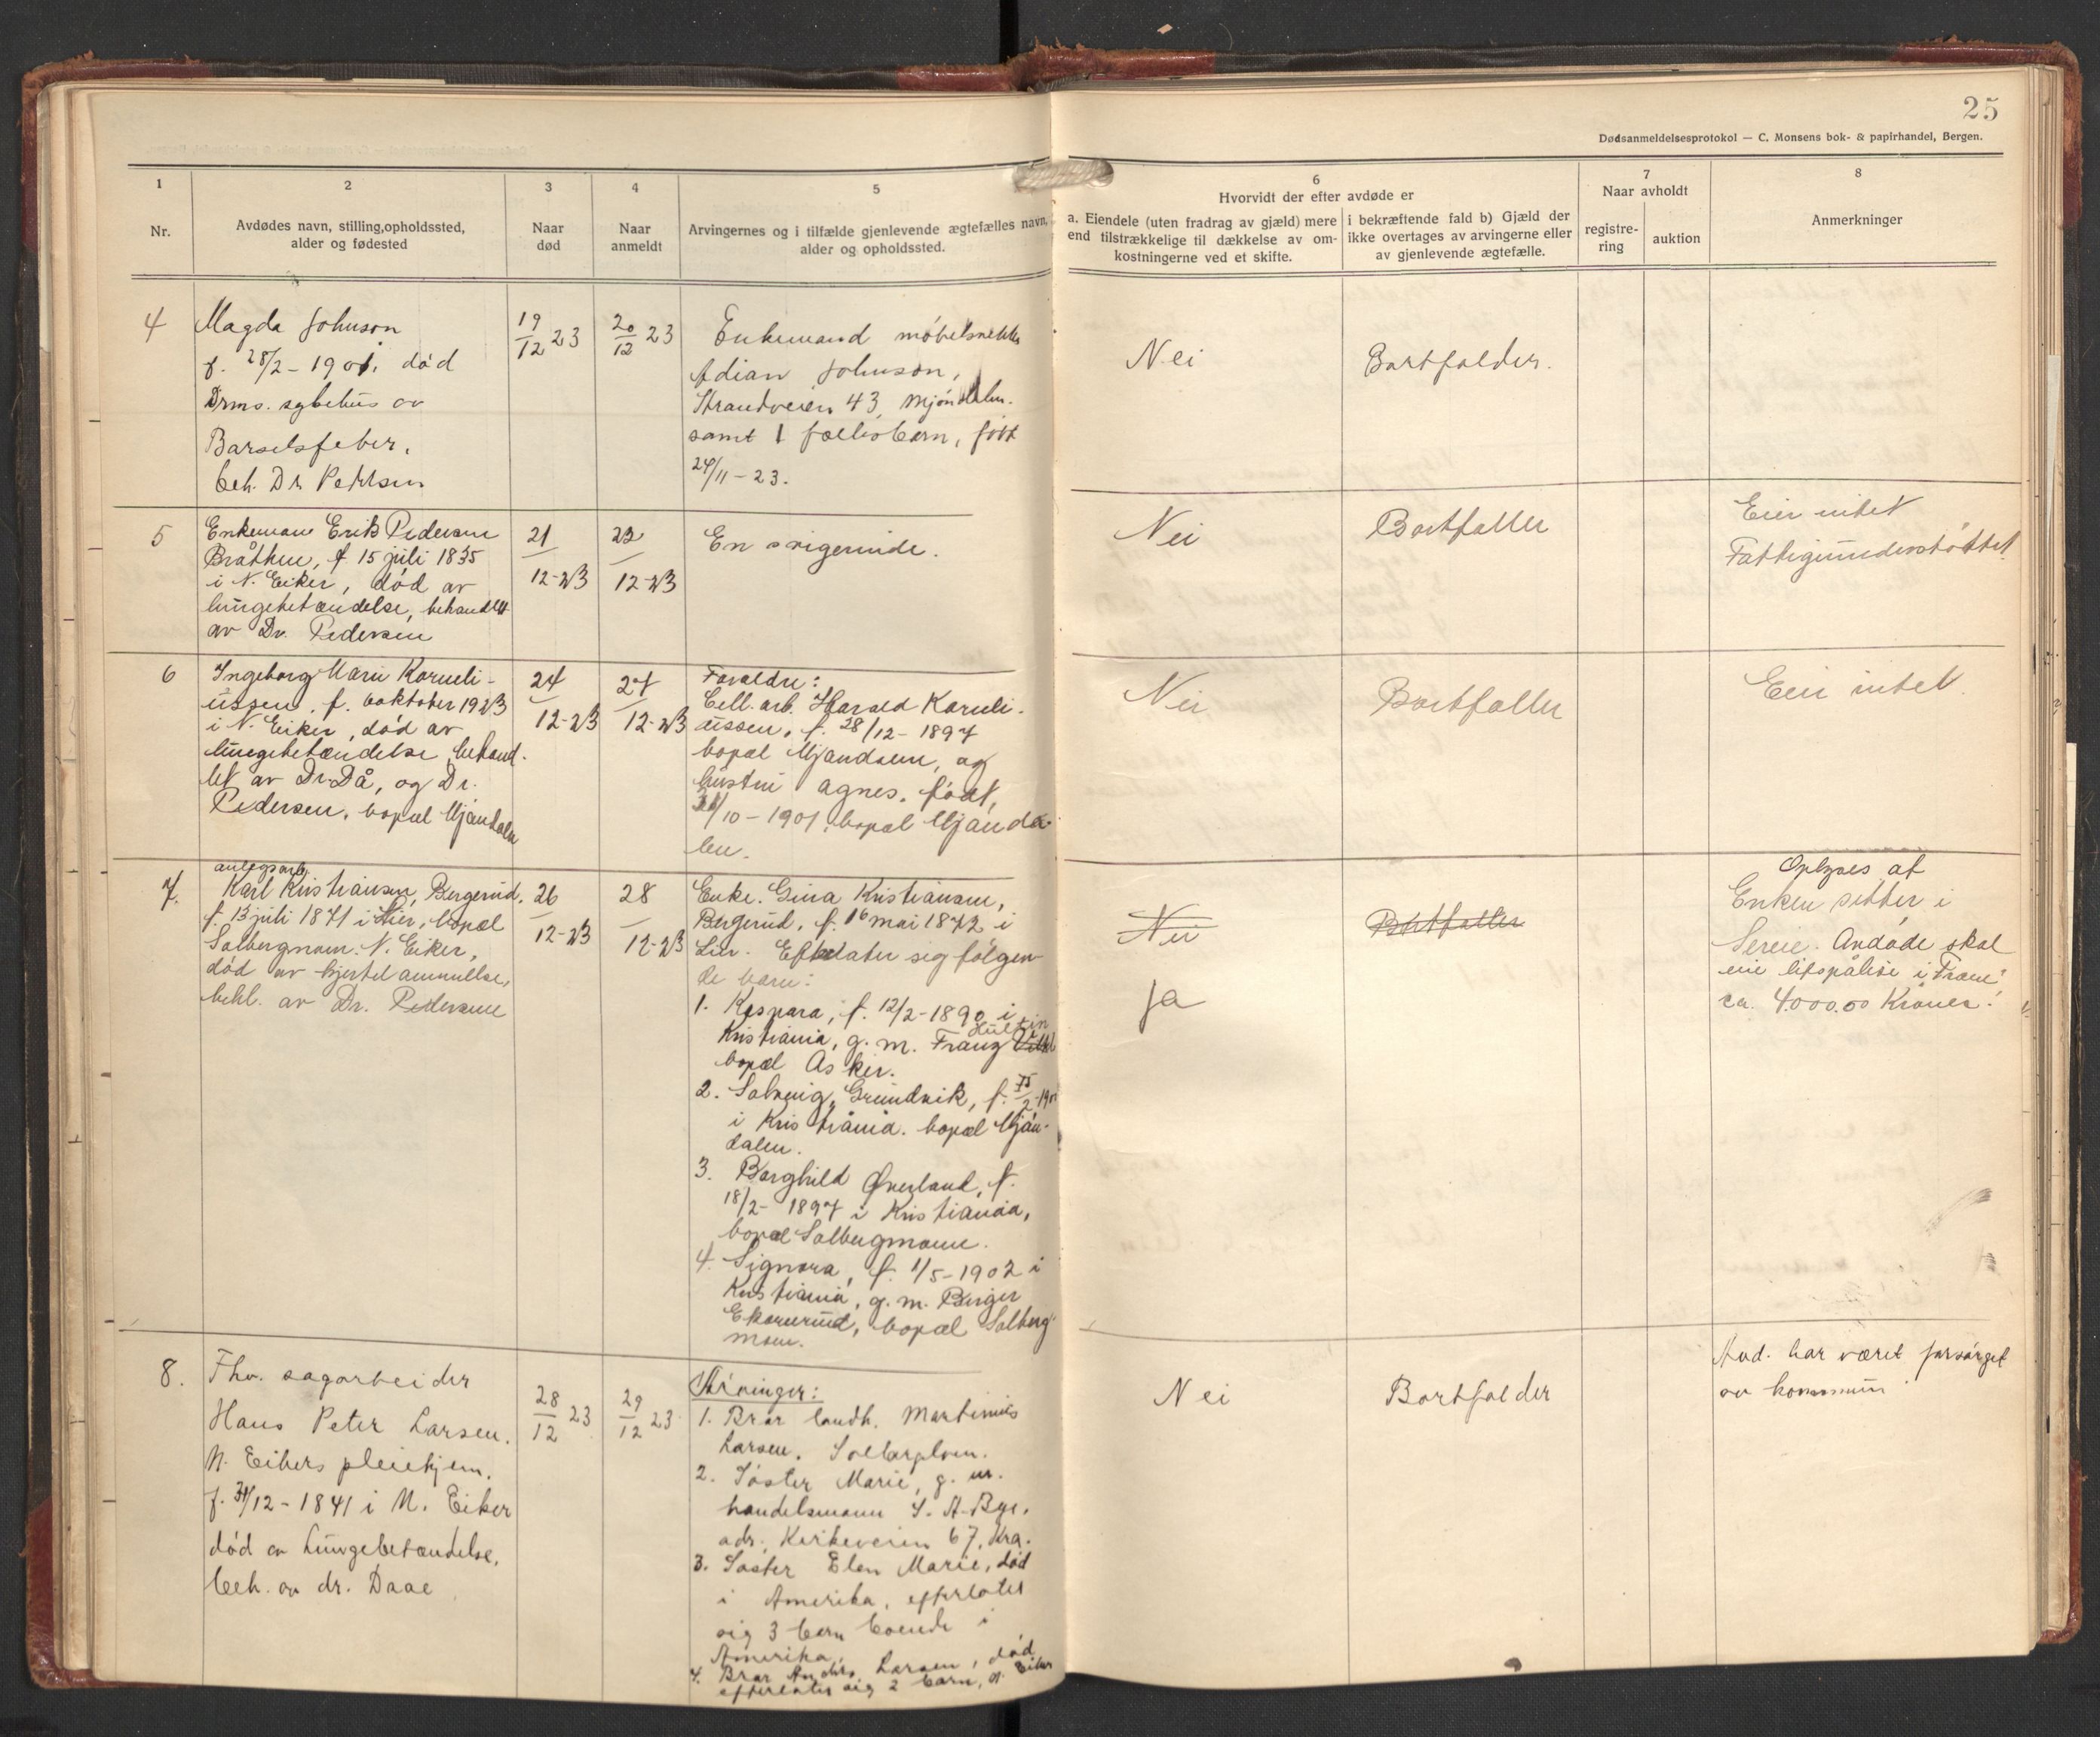 25
Dødsanmeldelsesprotokol — C. Monsens bok- & papirhandel, Bergen.
1
Nr.
2
Avdødes navn, stilling, opholdssted,
alder og fødested
3
Naar
død
4
Naar
anmeldt
5
Arvingernes og i tilfælde gjenlevende ægtefælles navn,
alder og opholdssted.
6
Hvorvidt der efter avdøde er
a. Eiendele (uten fradrag av gjæld) mere
end tilstrækkelige til dækkelse av om-
kostningerne ved et skifte.
i bekræftende fald b) Gjæld der
ikke overtages av arvingerne eller
av gjenlevende ægtefælle.
7
Naar avholdt
registre-
ring
auktion
8
Anmerkninger
4
Magda Johnson
f. 28/2 - 1901. død
Drms. sykehus av
Barselsfeber.
beh. Dr. Pedersen
19/12 23
20/12 23
Enkemand møbelsnekker
Adian Johnson,
Strandveien 43, Mjøndalen.
samt 1 fællesbarn, født
24/11 - 23.
Nei
Bortfalder.
5
Enkemann Erik Pedersen
Bråthen, f 15 juli 1835
i N. Eiker, død av
lungebetændelse, behandlet
av Dr. Pedersen
21/12-23
22/12-23
En svigerinde.
Nei
Bortfaller
Eier intet
Fattigunderstøttet.
6
Ingeborg Marie Korneli-
ussen, f. 6 oktober 1923
i N. Eiker, død av
lungebetændelse, behand-
let av Dr. Då, og Dr.
Pedersen, bopæl Mjøndalen
24/12-23
27/12-23
Foreldre:
Cell. arb. Harald Korneli-
ussen, f. 28/12 - 1897
bopæl Mjøndalen, og
hustru Agnes, født,
/10 - 1901, bopæl Mjønda-
len.
Nei
Bortfaller
Eier intet.
7.
anlegsarb.
Karl Kristiansen, Bergerud,
f. 13 juli 1871 i Lier, bopæl
Solbergmoen. N. Eiker,
død av hjertelammelse,
behl. av Dr. Pedersen
26/12-23
28/12-23
Enke. Gina Kristiansen,
Bergerud, f. 16 mai 1872 i
Lier. Efterlater sig følgen-
de barn:
1. Kaspara, f. 12/2 - 1890 i
Kristiania, g. m. Franz
bopæl Asker.
2. Solveig, Grundvik, f.
i Kristiania. bopæl Mjøn-
dalen.
3. Borghild Øverland, f.
18/2 - 1897 i Kristiania,
bopæl Solbergmoen.
4. Signora, f. 1/5 - 1902 i
Kristiania, g. m. Birger
Ekornrud, bopæl Solberg
moen.
Nei
Ja
Bortfaller
Oplyses at
Enken sitter i
Avdøde skal
eie livspolise i "Fram"
ca. 4000.00 Kroner.
8.
Fhv. sagarbeider
Hans Peter Larsen.
N. Eikers pleiehjem.
f. 31/12 - 1841 i N. Eiker
død av Lungebetændelse.
beh. av dr. Daae
28/12 23
29/12 23
Arvinger:
1. Bror landh. Martinius
Larsen. Solbergelven.
2. Søster Marie, g. m.
handelsmann S. A. Bye.
adr. Kirkeveien 67, Kra.
3. Søster Elen Marie, død
i Amerika, efterlater
sig 3 barn boende i
Amerika.
4. Bror Anders Larsen, død
efterlater sig 2 barn, N. Eiker
Nei
Bortfalder
Avd. har været forsørget
av kommunen